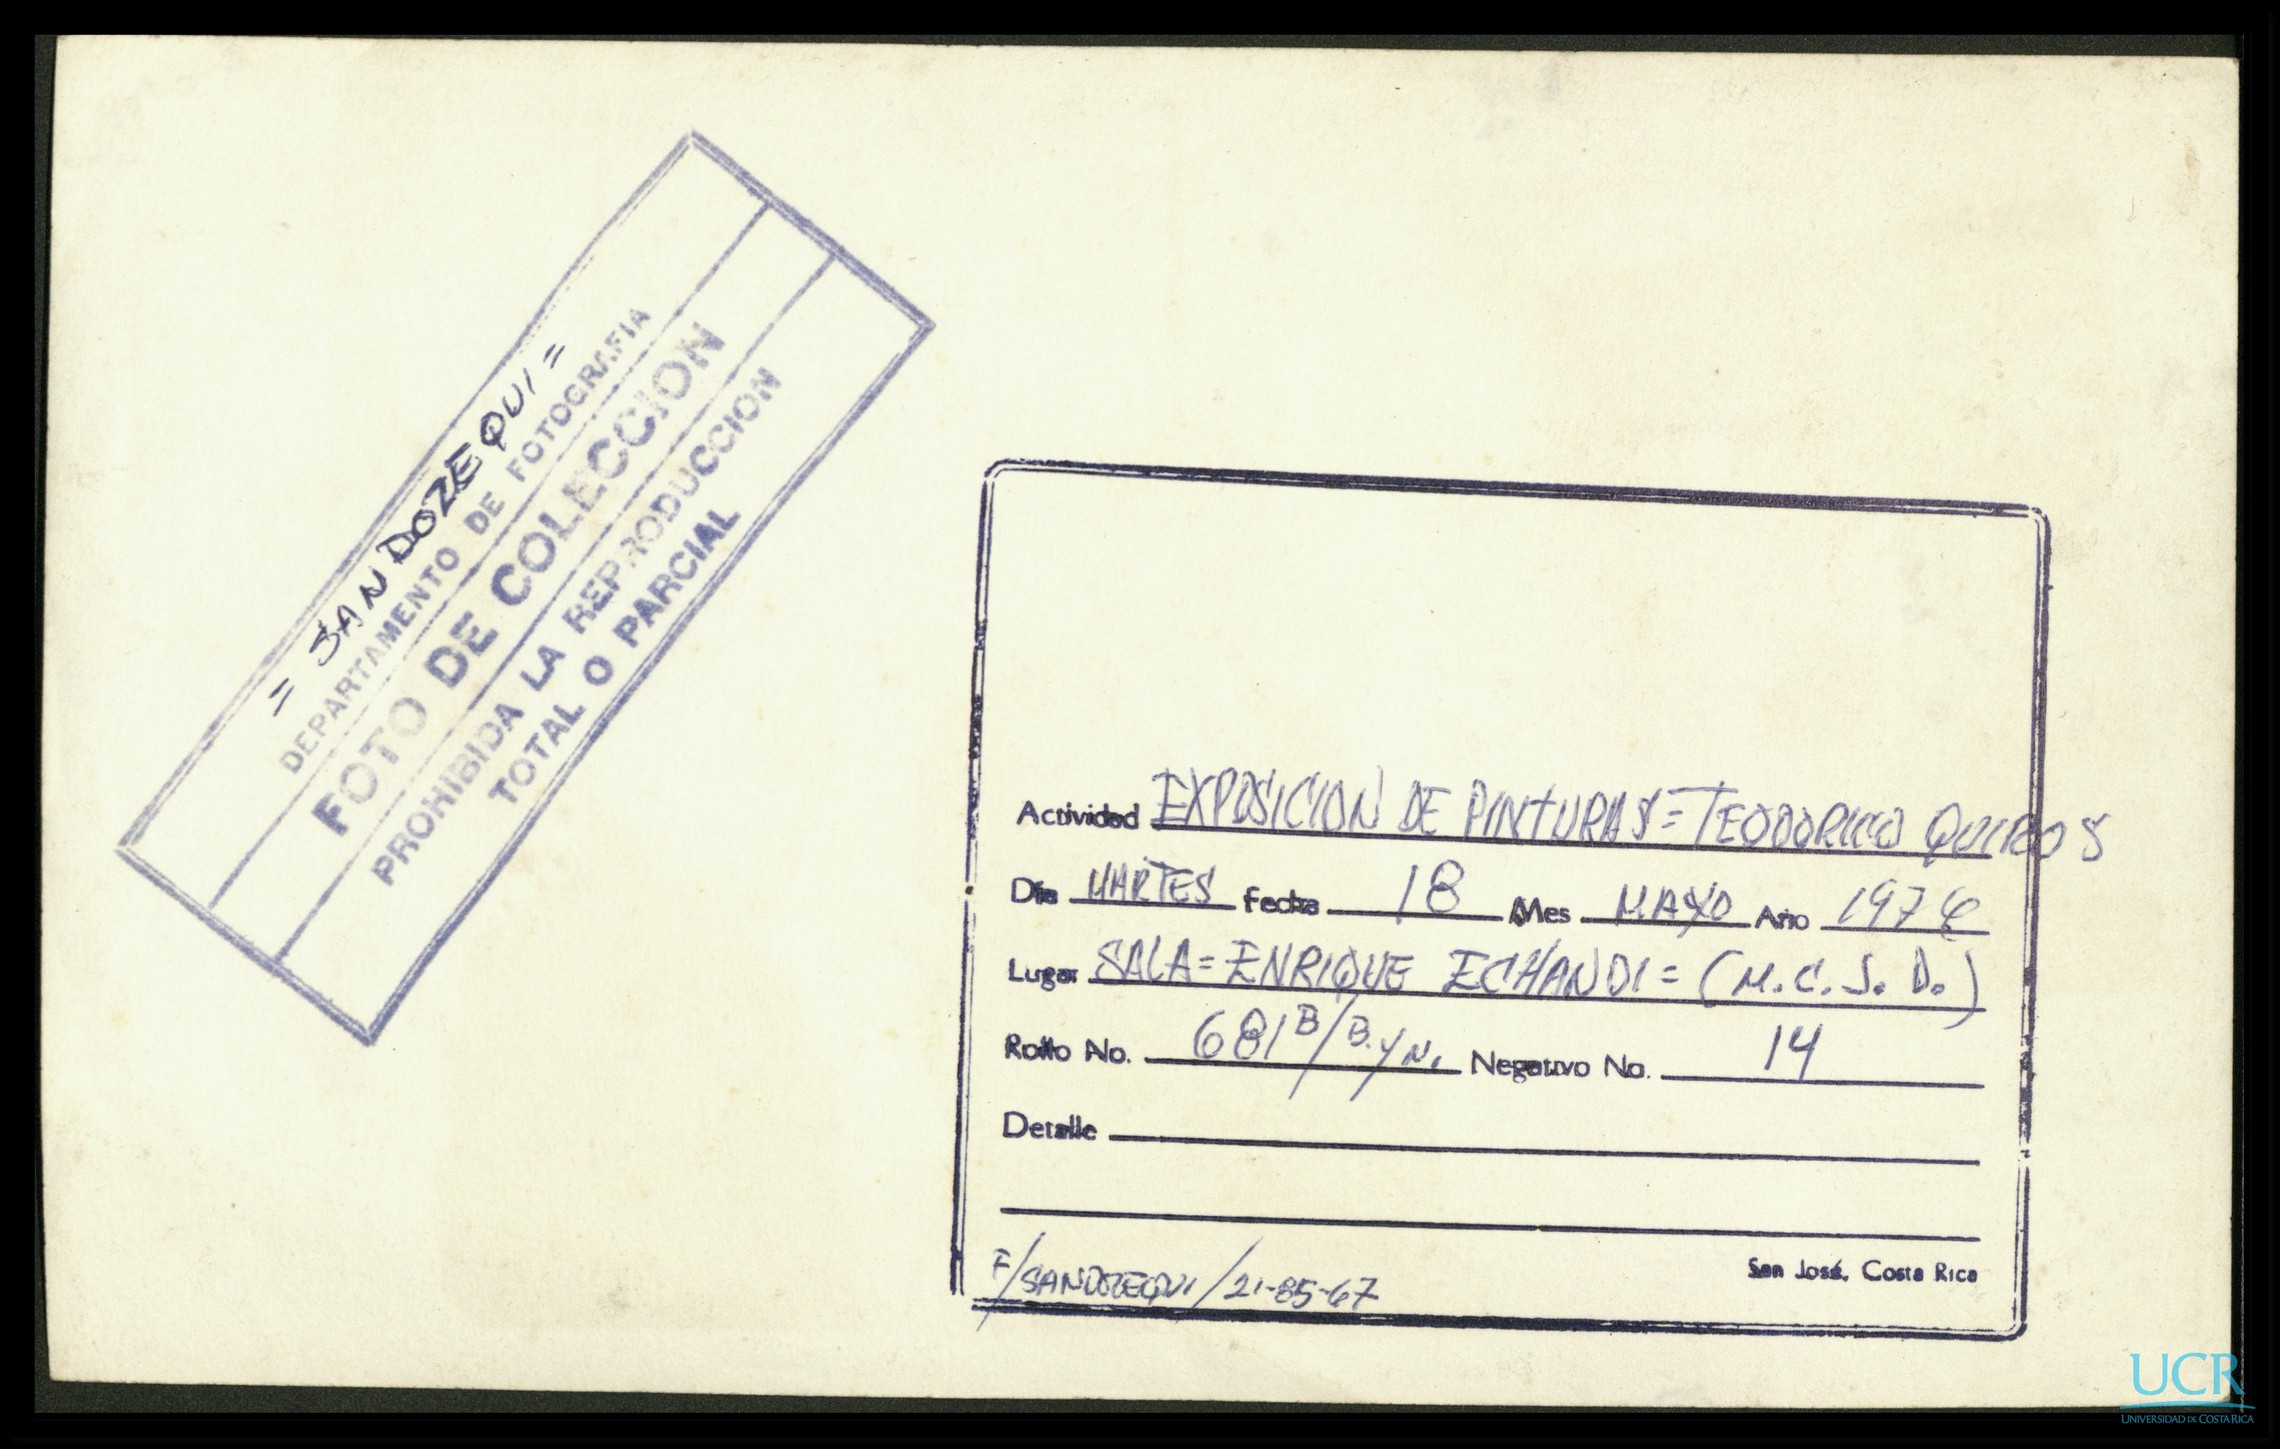 = SANDOZEQUI =
DEPARTAMENTO DE FOTOGRAFIA
FOTO DE COLECCION
PROHIBIDA LA REPRODUCCION
TOTAL O PARCIAL
Actividad EXPOSICION DE PINTURAS = TEODORICO QUIROS
Día MARTES Fecha 18 Mes MAYO Año 1976
Lugar SALA = ENRIQUE ECHANDI = (M.C.J.D.)
Rollo No. 681B/B.y N. Negativo No. 14
Detalle
San José, Costa Rica
F/SANDOZEQUI/21-85-67
UCR
UNIVERSIDAD DE COSTA RICA